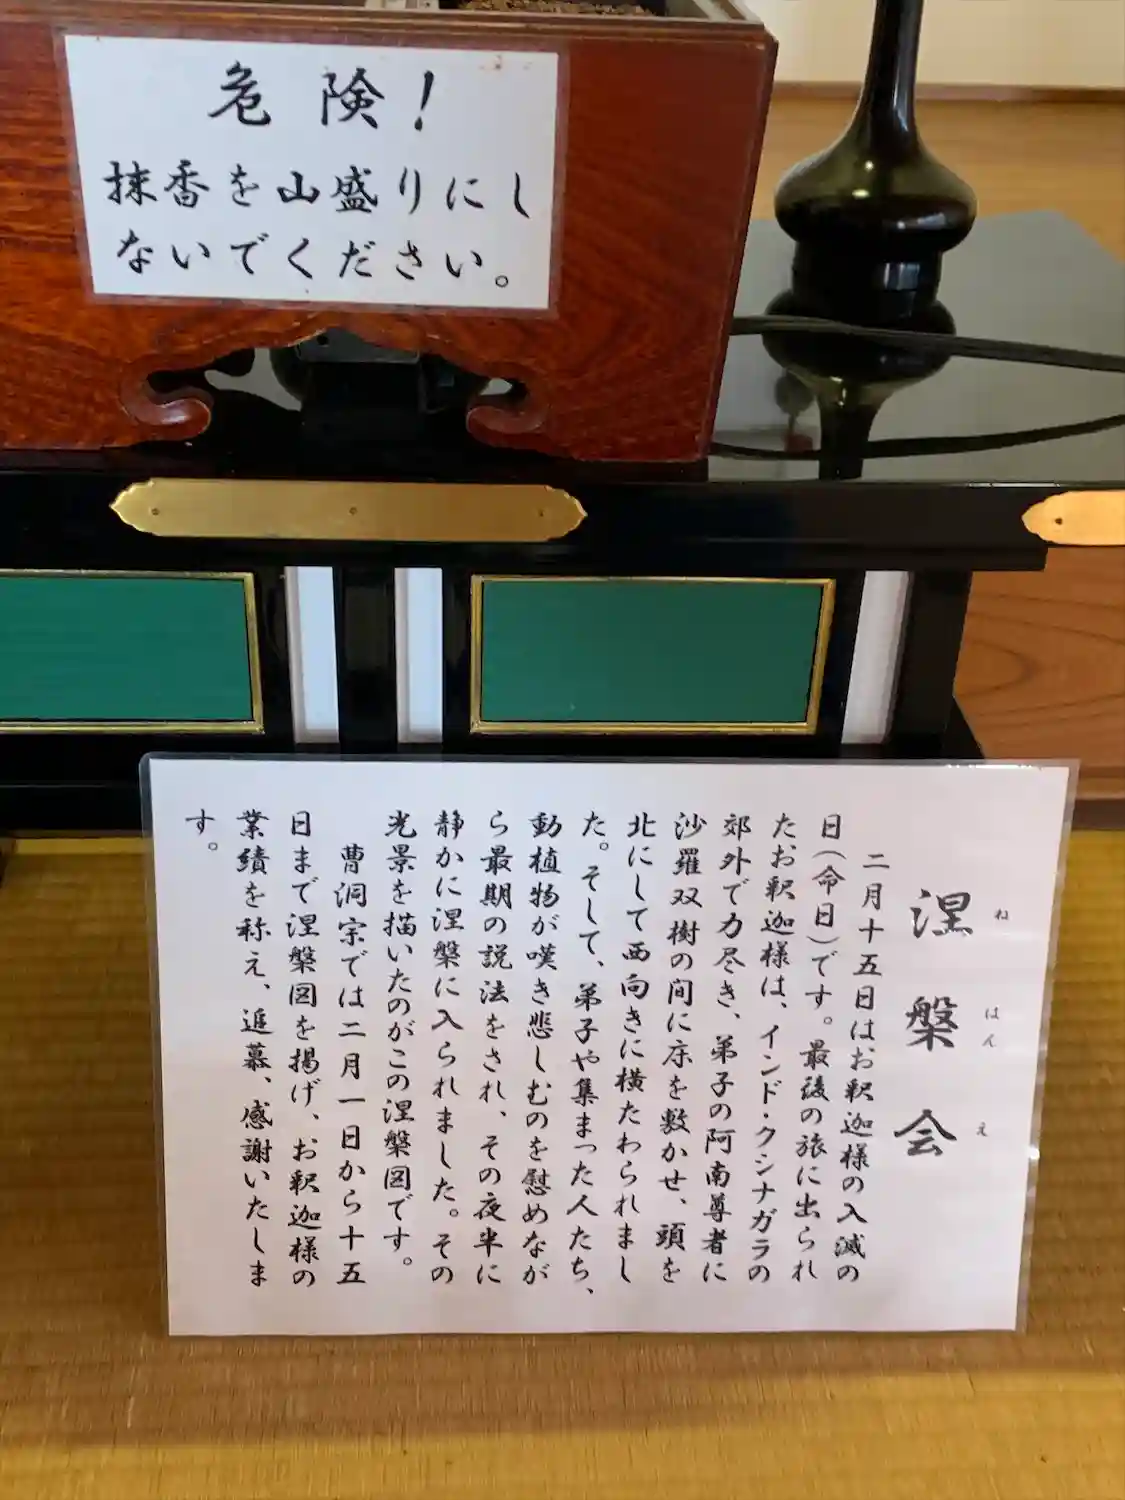 危険！
抹香を山盛りにし
ないでください。
涅槃会
ねはんえ
二月十五日はお釈迦様の入滅の
日(命日)です。最後の旅に出られ
たお釈迦様は、インド・クシナガラの
郊外で力尽き、弟子の阿南尊者に
沙羅双樹の間に床を敷かせ、頭を
北にして西向きに横たわられまし
た。そして、弟子や集まった人たち、
動植物が嘆き悲しむのを慰めなが
ら最期の説法をされ、その夜半に
静かに涅槃に入られました。その
光景を描いたのがこの涅槃図です。
曹洞宗では二月一日から十五
日まで涅槃図を掲げ、お釈迦様の
業績を称え、追慕、感謝いたしま
す。